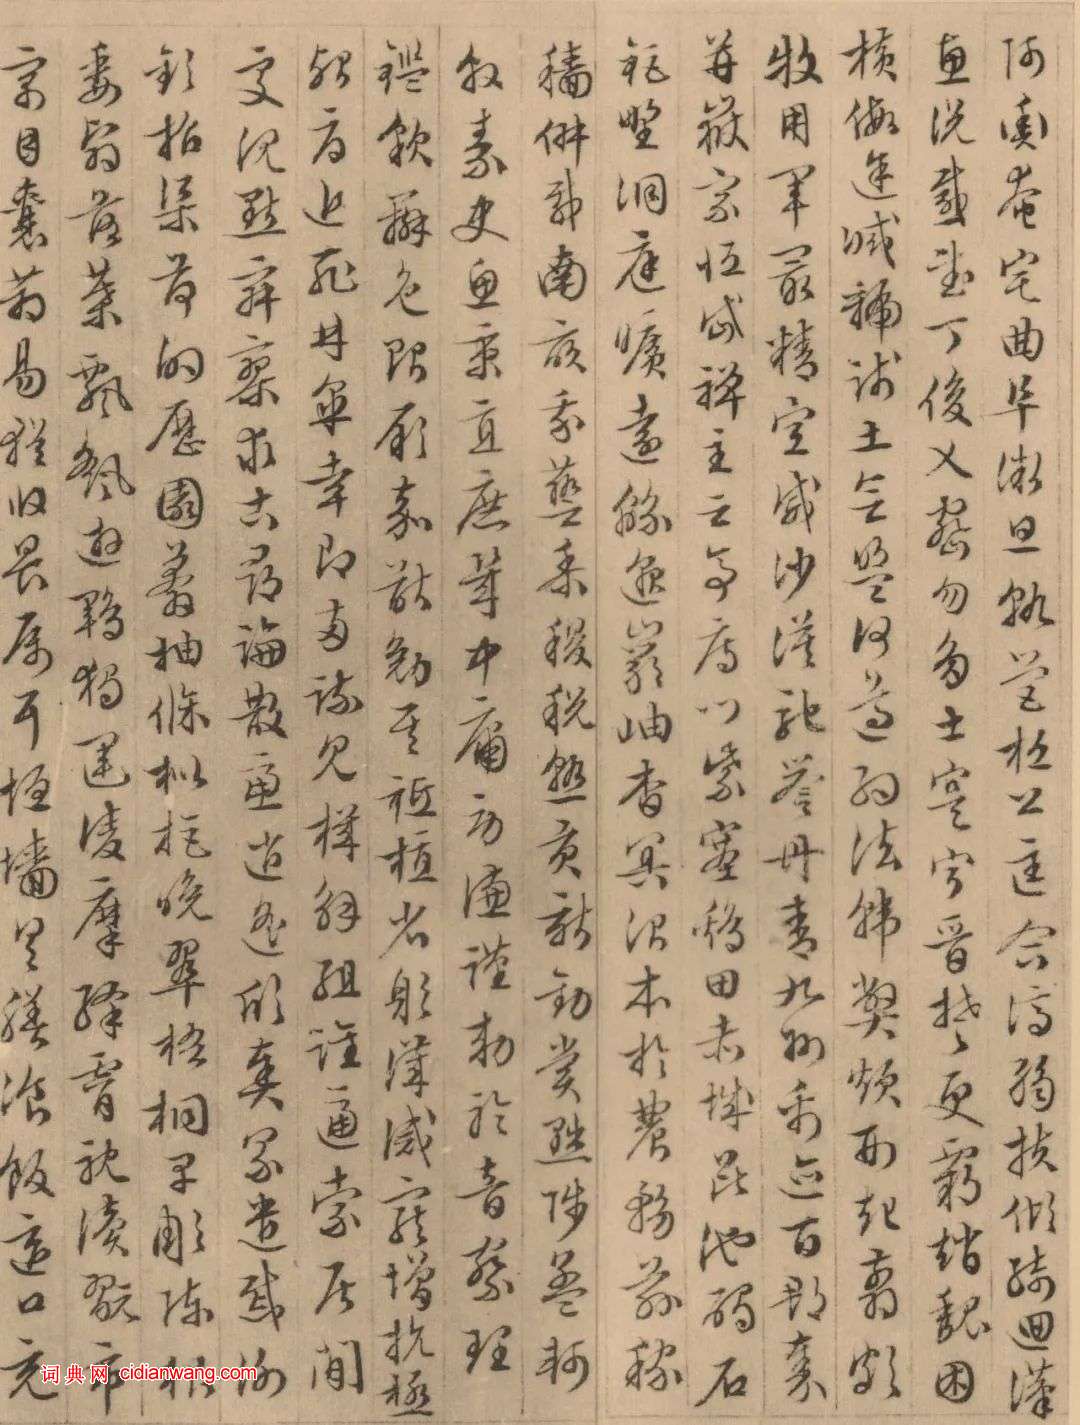 阿衡奄宅曲阜微旦孰營桓公匡合濟弱扶傾綺迴漢
惠說感武丁俊乂密勿多士寔寧晉楚更霸趙魏困
橫假途滅虢踐土會盟何遵約法韓弊煩刑起翦頗
牧用軍最精宣威沙漠馳譽丹青九州禹跡百郡秦
并嶽宗恒岱禪主云亭雁門紫塞雞田赤城昆池碣石
鉅野洞庭曠遠綿邈巖岫杳冥治本於農務茲稼
穡俶載南畝我藝黍稷稅熟貢新勸賞黜陟孟軻
敦素史魚秉直庶幾中庸勞謙謹敕聆音察理
鑑貌辨色貽厥嘉猷勉其祗植省躬譏誡寵增抗極
殆辱近恥林皋幸即兩疏見機解組誰逼索居閒
處沉默寂寥求古尋論散慮逍遙欣奏累遣慼謝
歡招渠荷的歷園莽抽條枇杷晚翠梧桐早彫陳根
委翳落葉飄颻遊鵾獨運凌摩絳霄耽讀翫市
寓目囊箱易輶攸畏屬耳垣牆具膳飡飯適口充
词典网 cidianwang.com